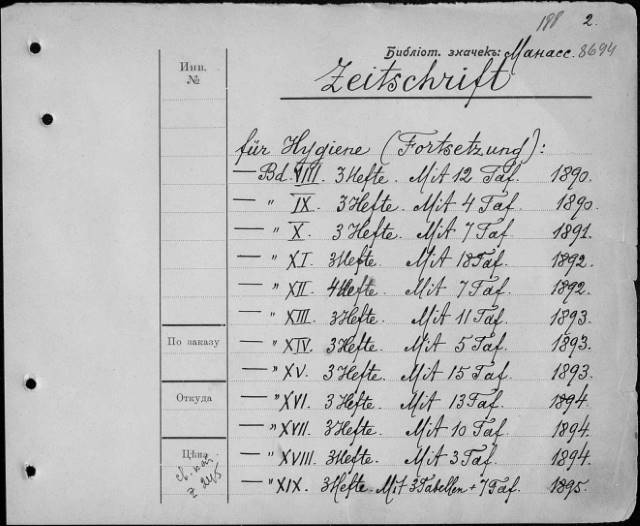 188 2.
Библіот. значекъ: Манасс. 8694
Инв.
№
Zeitschrift
für Hygiene (Fortsetzung):
— Bd. VIII. 3 Hefte. Mit 12 Taf. 1890.
— " IX. 3 Hefte. Mit 4 Taf. 1890.
— " X. 3 Hefte. Mit 7 Taf. 1891.
— " XI. 3 Hefte. Mit 18 Taf. 1892.
— " XII. 4 Hefte. Mit 7 Taf. 1892.
— " XIII. 3 Hefte. Mit 11 Taf. 1893.
По заказу
— " XIV. 3 Hefte. Mit 5 Taf. 1893.
— " XV. 3 Hefte. Mit 15 Taf. 1893.
Откуда
— " XVI. 3 Hefte. Mit 13 Taf. 1894.
— " XVII. 3 Hefte. Mit 10 Taf. 1894.
Цѣна
— " XVIII. 3 Hefte. Mit 3 Taf. 1894.
— " XIX. 3 Hefte. Mit 3 Tabellen + 7 Taf. 1895.